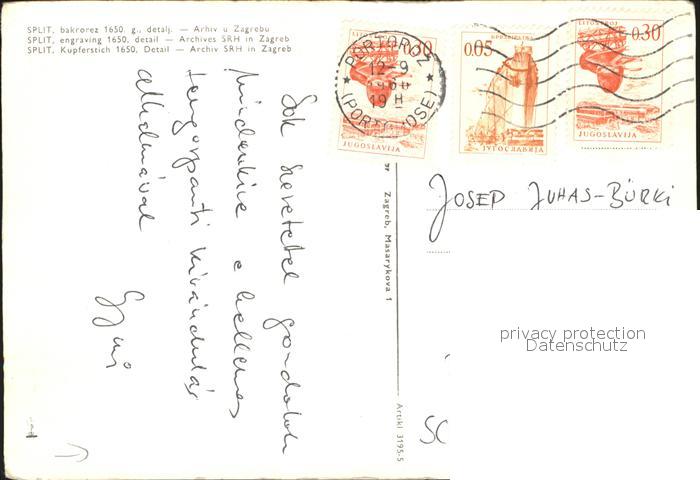 SPLIT, bakrorez 1650. g., detalj. — Arhiv u Zagrebu
SPLIT, engraving 1650, detail — Archives SRH in Zagreb
SPLIT, Kupferstich 1650, Detail — Archiv SRH in Zagreb
LITOSTROJ
0.30
JUGOSLAVIJA
0.05
ЈУГОСЛАВИЈА
LITOSTROJ
0.30
JUGOSLAVIJA
PORTOROŽ
12-9
19 H
Sok szeretettel gondolok
mindenkire a kellemes
tengerparti kirándulás
alkalmával
Zagreb, Masarykova 1
Artikl 3195-5
JOSEP JUHAS-BÜRKI
privacy protection
Datenschutz